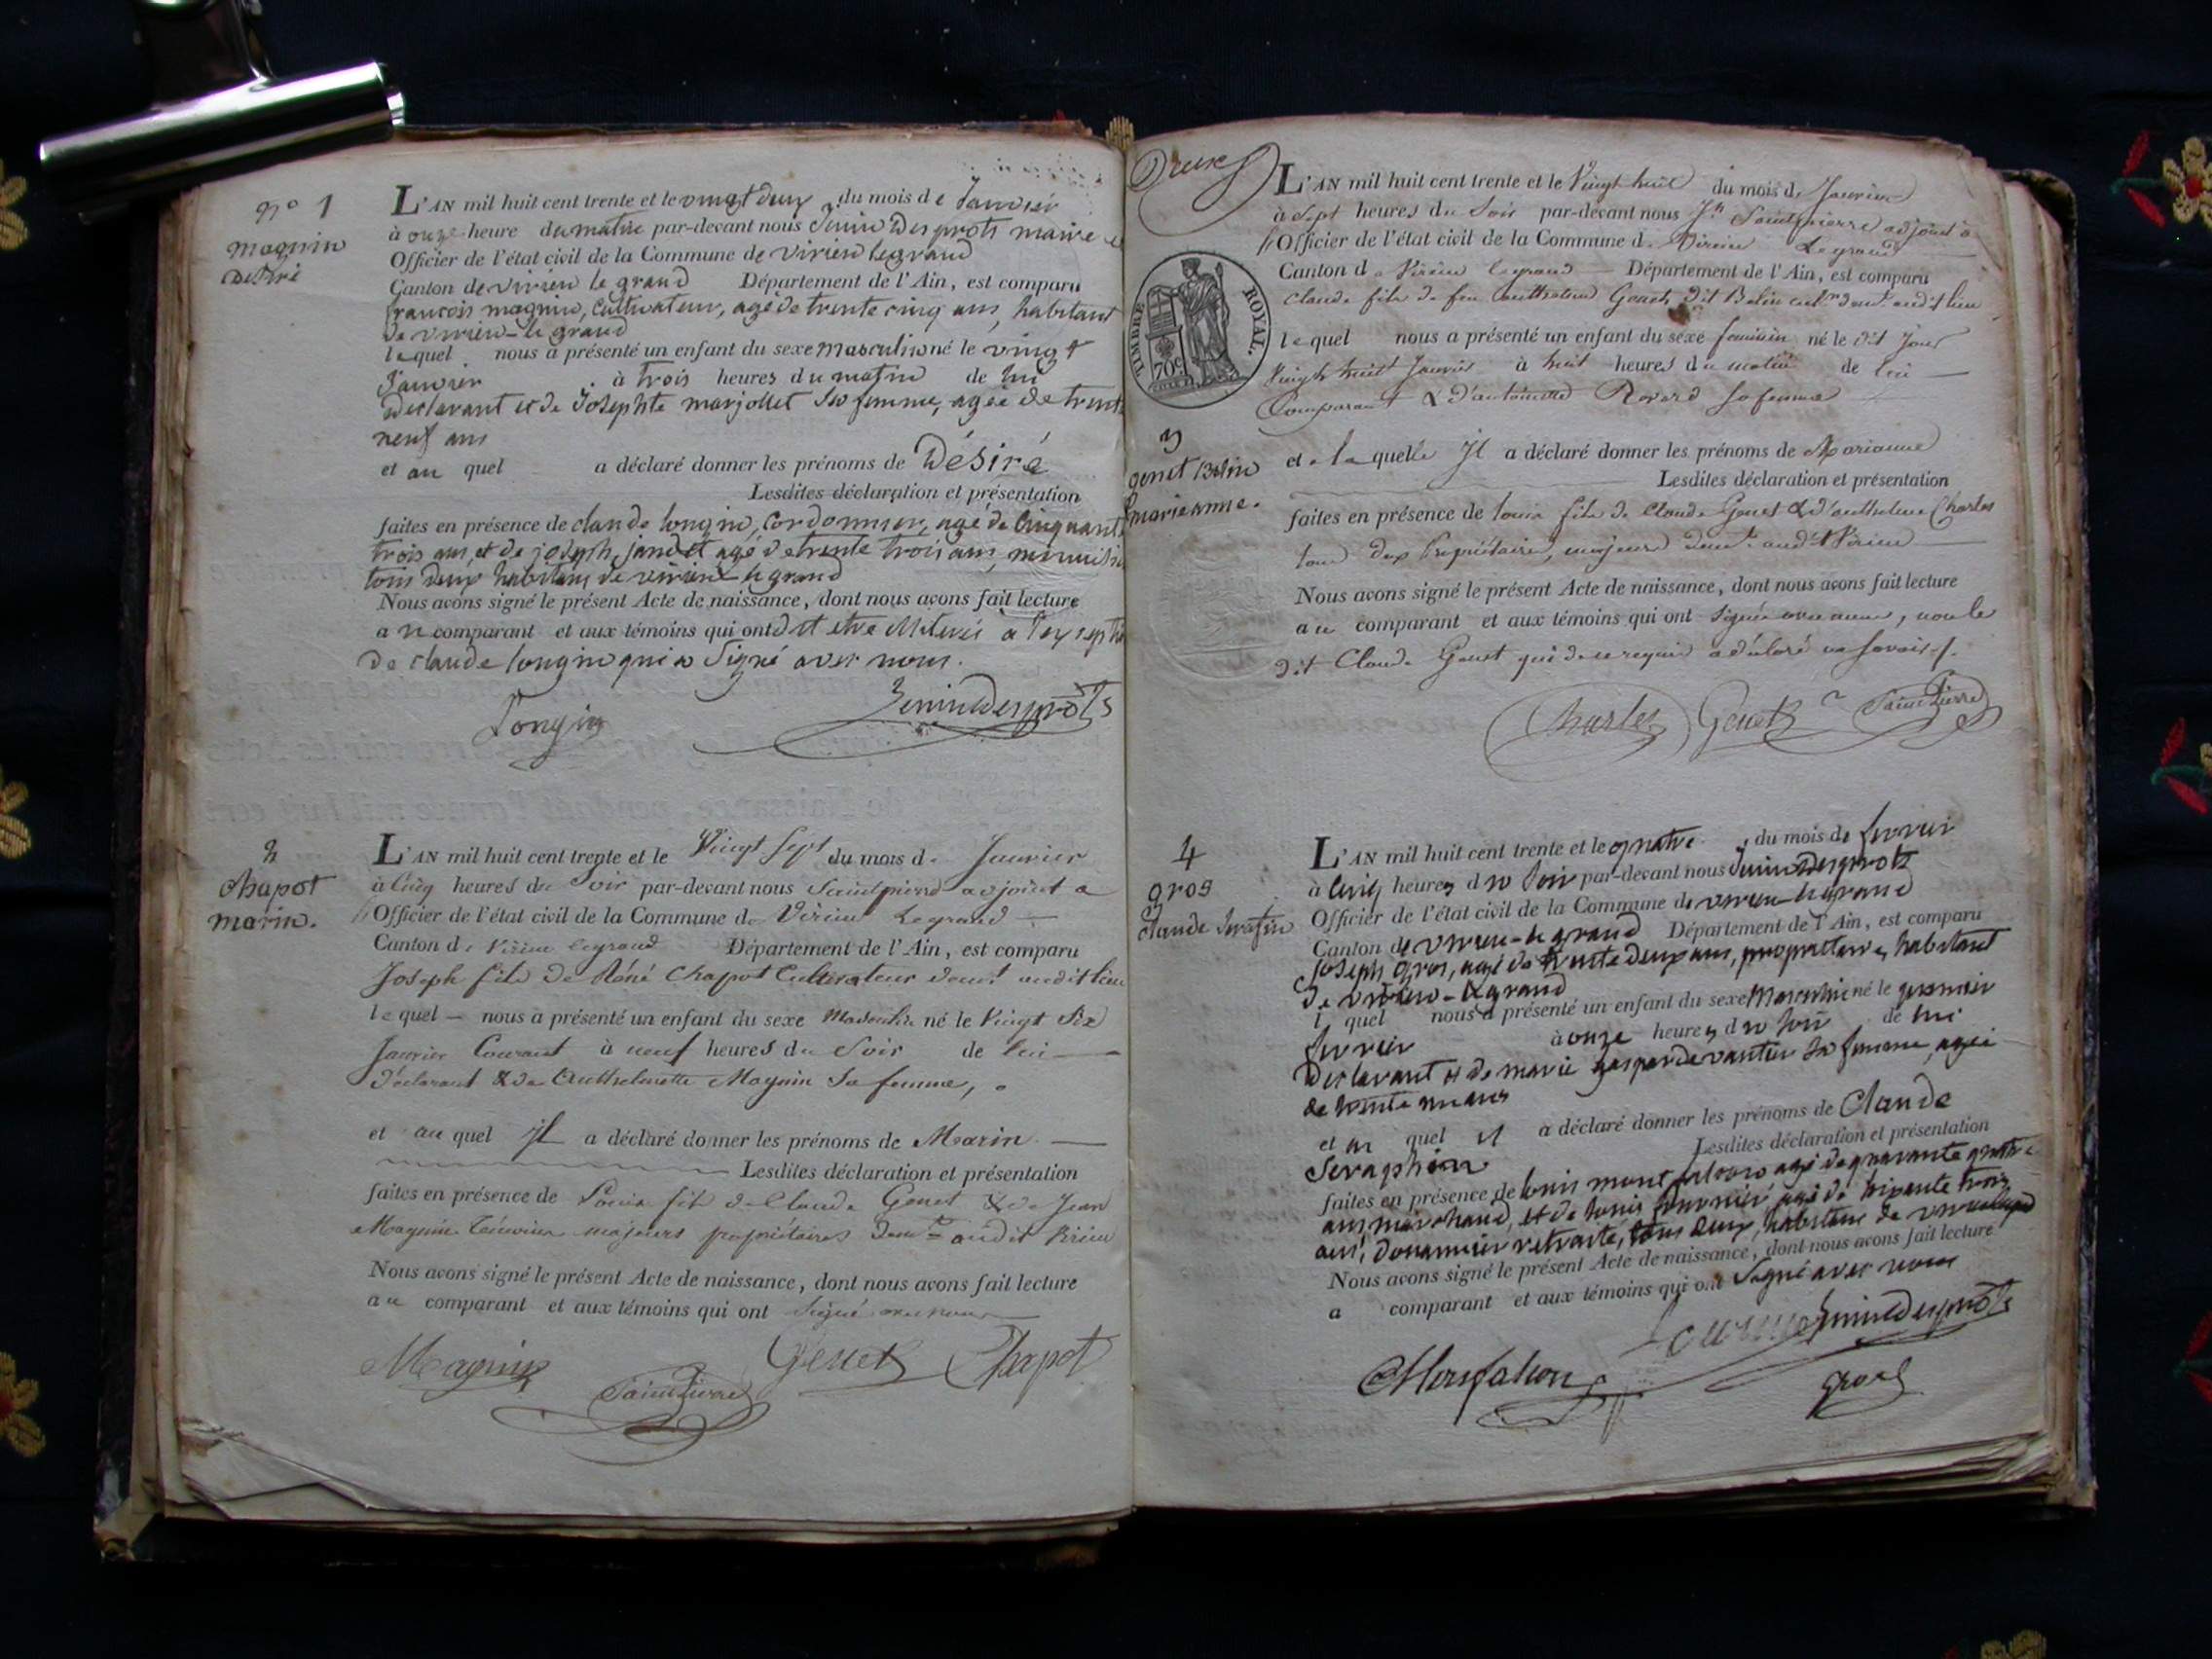 n° 1
magnin
Désiré
L'AN mil huit cent trente et le vingt deux du mois de Janvier
à onze heure du matin par-devant nous Jenin Desprots maire
Officier de l'état civil de la Commune de virieu le grand
Canton de virieu le grand Département de l'Ain, est comparu
françois magnin, cultivateur, agé de trente cinq ans, habitant
de virieu-le grand
lequel nous a présenté un enfant du sexe masculin né le vingt
Janvier à trois heures du matin de lui
Déclarant et de Josephte marjollet sa femme, agée de trente
neuf ans
et au quel a déclaré donner les prénoms de Désiré
Lesdites déclaration et présentation
faites en présence de claude longin, cordonnier, agé de cinquante
trois ans, et de joseph, jandet agé de trente trois ans, menuisier
tous deux habitans de virieu le grand
Nous avons signé le présent Acte de naissance, dont nous avons fait lecture
au comparant et aux témoins qui ont dit etre illiterés à l'exseption
de claude longin qui a signé avec nous.
Longin
Jenin Desprots
2
chapot
marin.
L'AN mil huit cent trente et le Vingt Sept du mois de Janvier
à Cinq heures du Soir par-devant nous Saintpierre adjoint a
l'Officier de l'état civil de la Commune de Virieu Legrand
Canton de Virieu legrand Département de l'Ain, est comparu
Joseph fils de Réné Chapot Cultivateur demt audit lieu
lequel nous a présenté un enfant du sexe Masculin né le Vingt Six
Janvier Courant à neuf heures du Soir de lui
déclarant & de Anthelmette Magnin Sa femme,
et au quel Il a déclaré donner les prénoms de Marin
Lesdites déclaration et présentation
faites en présence de Louis fils de Claude Genet & de Jean
Magnin Témoins majeurs propriétaires demts audit Virieu
Nous avons signé le présent Acte de naissance, dont nous avons fait lecture
au comparant et aux témoins qui ont Signé avec nous
Magnin
SaintPierre
Genet
Chapot
Deux
L'AN mil huit cent trente et le Vingt huit du mois de Janvier
à Sept heures du Soir par-devant nous Jh Saintpierre adjoint à
l'Officier de l'état civil de la Commune de Virieu Legrand
Canton de Virieu legrand Département de l'Ain, est comparu
Claude fils de feu Anthelme Genet dit Belin cultr demt audit lieu
lequel nous a présenté un enfant du sexe feminin né le dit Jour
Vingt huit Janvier à huit heures du matin de lui
Comparant & d'antoinette sa femme
TIMBRE ROYAL.
70c
3
genet Belin
marieanne.
et a laquelle Il a déclaré donner les prénoms de Marianne
Lesdites déclaration et présentation
faites en présence de louis fils de Claude Genet & d'anthelme Charles
tous deux Propriétaires, majeurs demt audt Virieu
Nous avons signé le présent Acte de naissance, dont nous avons fait lecture
au comparant et aux témoins qui ont signé avec nous, non le
dit Claude Genet qui de ce requis a déclaré ne savoir
Charles
Genet
SaintPierre
4
gros
claude serafin
L'AN mil huit cent trente et le quatre du mois de fevrier
à Cinq heures du soir par-devant nous Jenin Desprots
Officier de l'état civil de la Commune de virieu-le grand
Canton de virieu-le grand Département de l'Ain, est comparu
Joseph gros, agé de trente deux ans, propriettaire, habitant
de virieu-le grand
lquel nous a présenté un enfant du sexe Masculin né le premier
fevrier à onze heures du soir de lui
Declarant et de marie gasparde vantier sa femme, agée
de trente un ans
et au quel il a déclaré donner les prénoms de Claude
Seraphin
Lesdites déclaration et présentation
faites en présence de louis montfalcon agé de quarante quatre
ans, marchand, et de louis fournier agé de soixante trois
ans, douannier retraité, tous deux, habitans de virieu legrand
Nous avons signé le présent Acte de naissance, dont nous avons fait lecture
a comparant et aux témoins qui ont Signé avec nous
Jenin Desprots
Monfalcon
gros